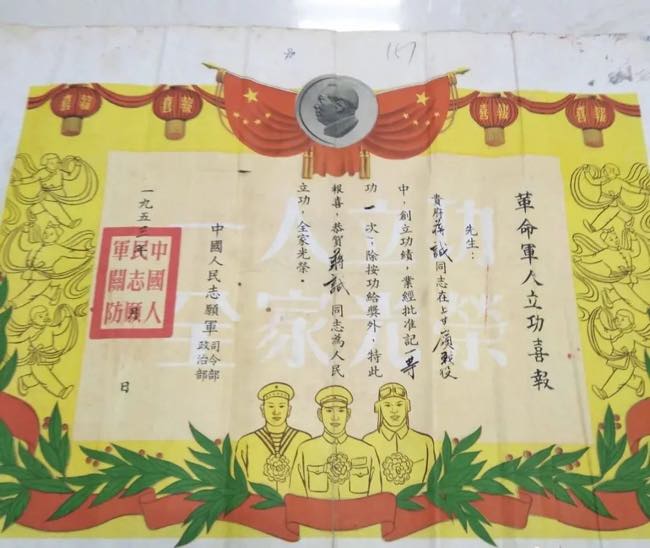 喜報
喜報
喜報
喜報
革命軍人立功喜報
先生：
貴府蔣誠同志在上甘嶺戰役
中，創立功績，業經批准記一等
功一次；除按功給獎外，特此
報喜，恭賀蔣誠同志為人民
立功，全家光榮。
中國人民志願軍司令部政治部
一九五三年 月 日
中國人民志願軍關防
一人立功
全家光榮